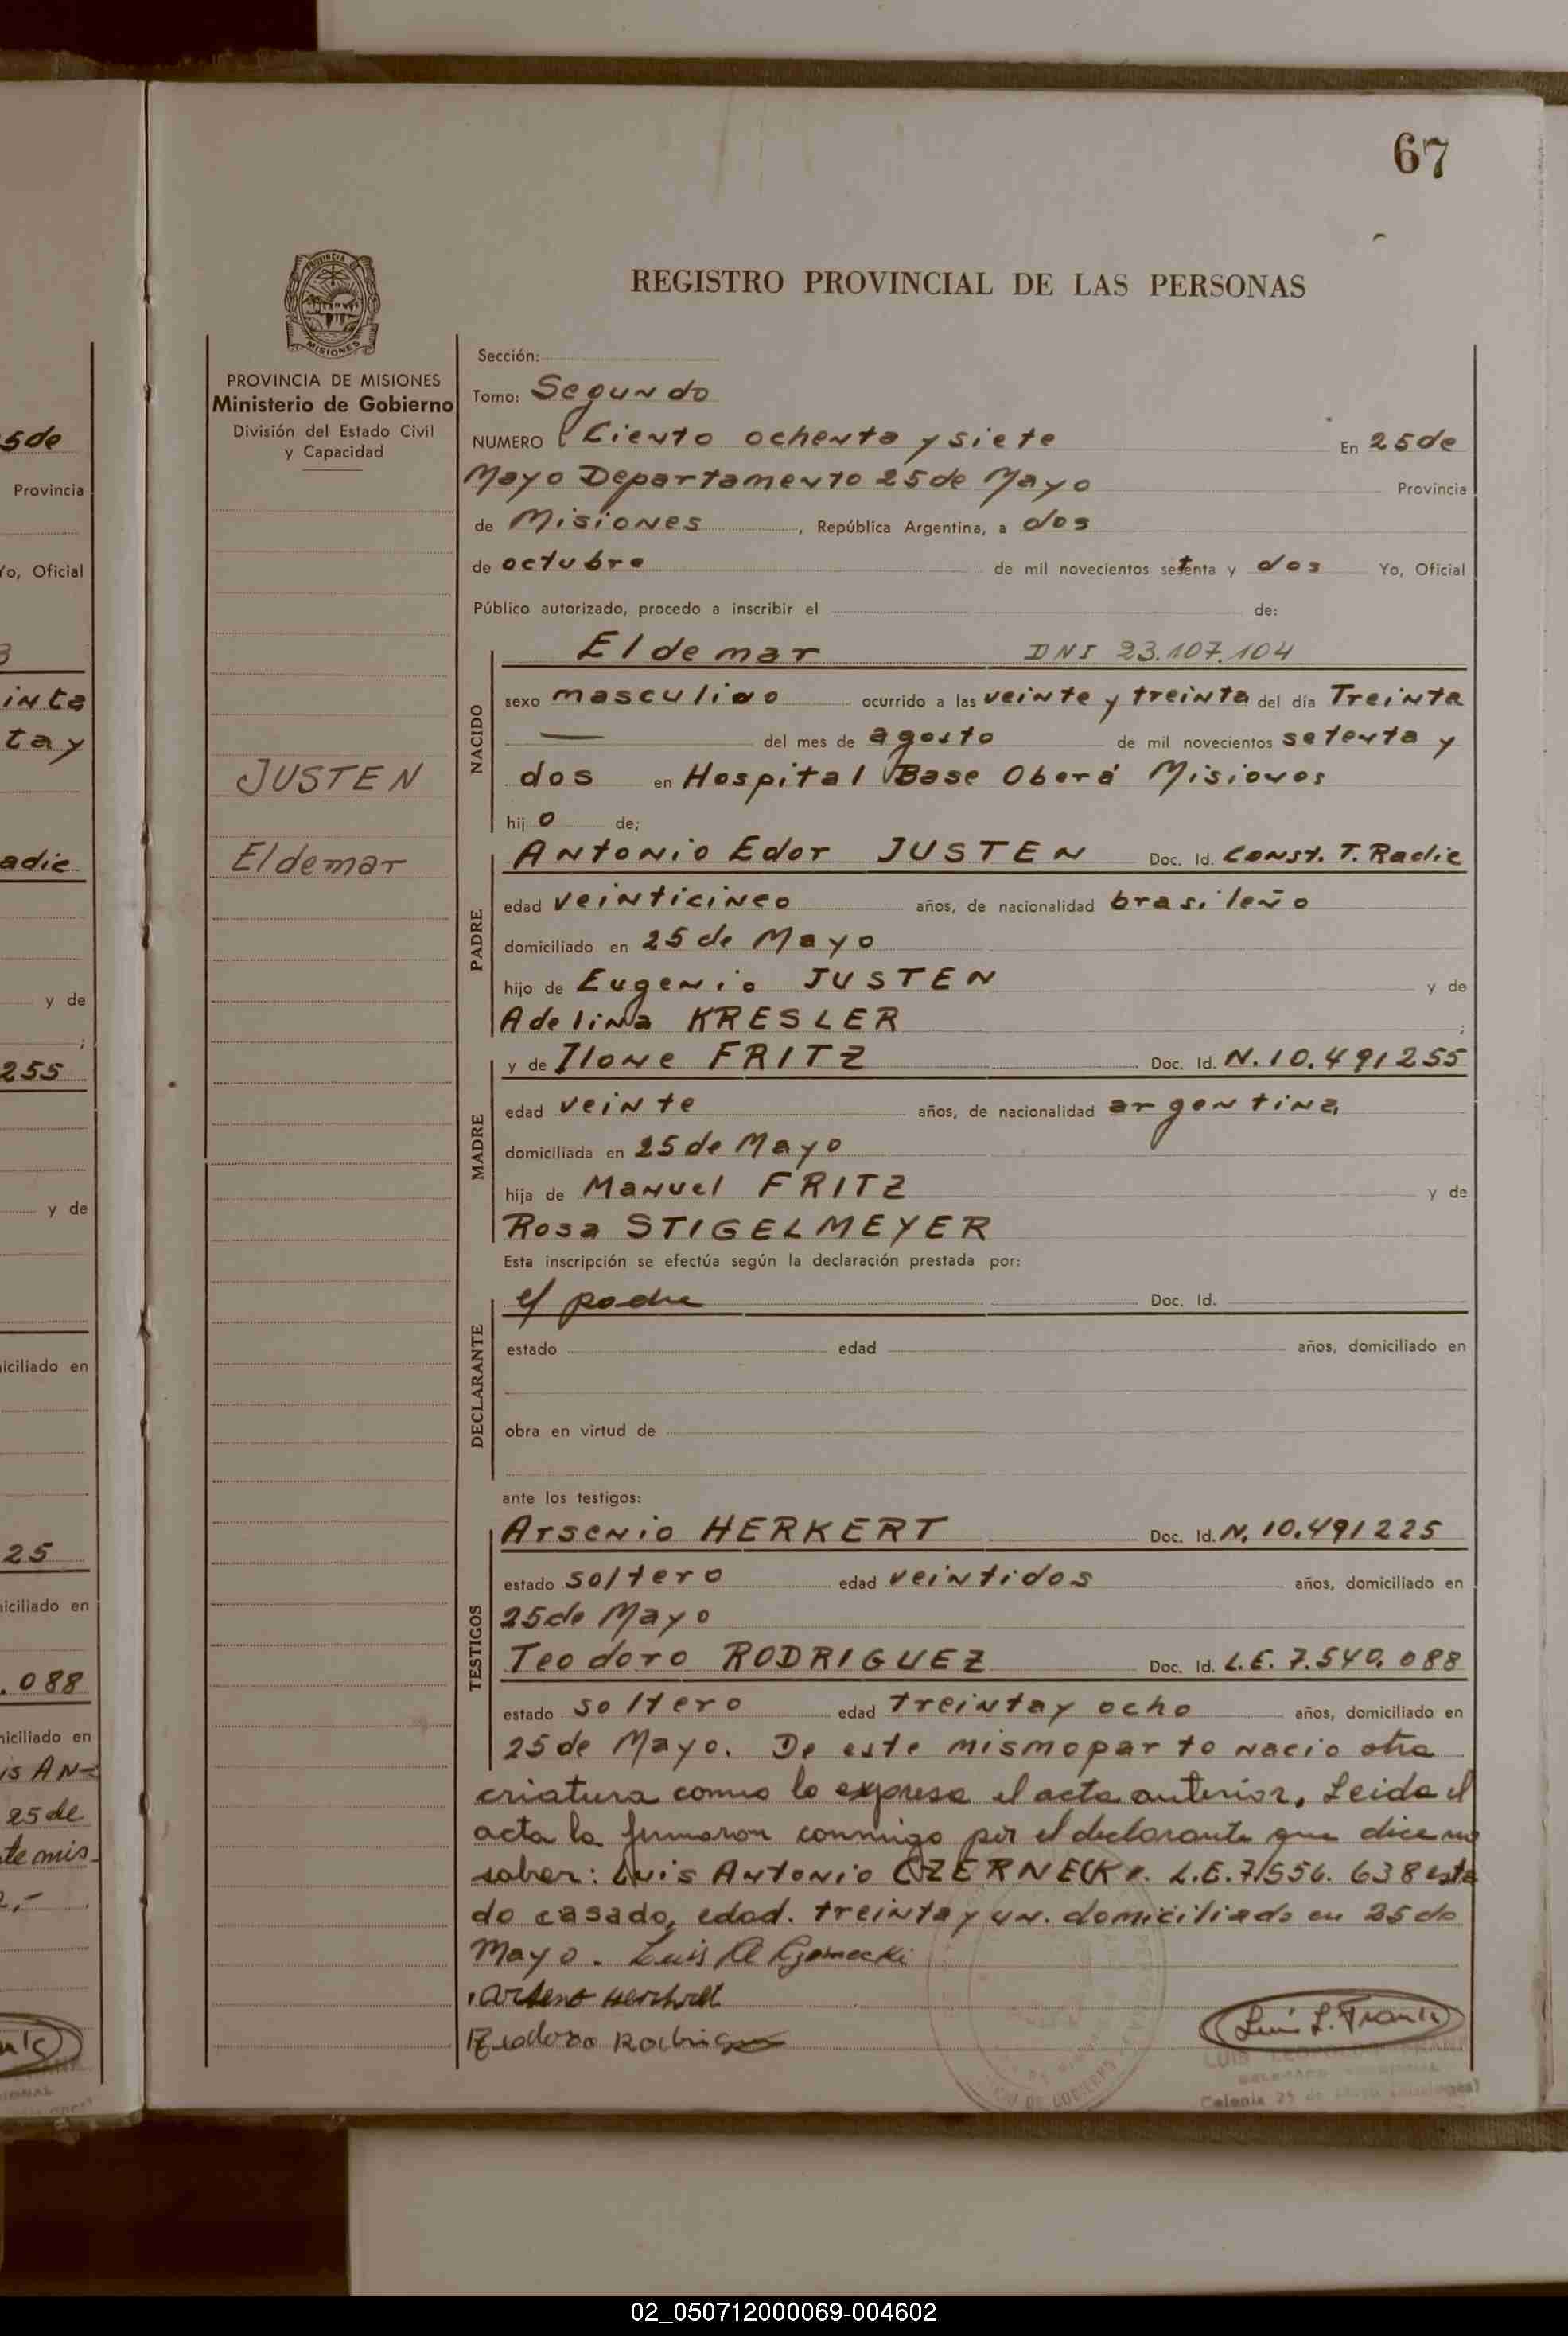 67
REGISTRO PROVINCIAL DE LAS PERSONAS
PROVINCIA
MISIONES
PROVINCIA DE MISIONES
Ministerio de Gobierno
División del Estado Civil
y Capacidad
JUSTEN
Eldemar
Sección:
Tomo: Segundo
NUMERO Ciento ochenta y siete En 25 de
Mayo Departamento 25 de Mayo Provincia
de Misiones, República Argentina, a dos
de octubre de mil novecientos setenta y dos Yo, Oficial
Público autorizado, procedo a inscribir el de:
NACIDO
Eldemar DNI 23.107.104
sexo masculino ocurrido a las veinte y treinta del día Treinta
— del mes de agosto de mil novecientos setenta y
dos en Hospital Base Oberá Misiones
hijo de;
PADRE
Antonio Edor JUSTEN Doc. Id. Const. T. Radic
edad veinticinco años, de nacionalidad brasileño
domiciliado en 25 de Mayo
hijo de Eugenio JUSTEN y de
Adelina KRESLER ;
MADRE
y de Ilone FRITZ Doc. Id. N. 10.491255
edad veinte años, de nacionalidad argentina
domiciliada en 25 de Mayo
hija de Manuel FRITZ y de
Rosa STIGELMEYER
Esta inscripción se efectúa según la declaración prestada por:
DECLARANTE
el padre Doc. Id.
estado edad años, domiciliado en
obra en virtud de
ante los testigos:
TESTIGOS
Arsenio HERKERT Doc. Id. N. 10.491225
estado soltero edad veintidos años, domiciliado en
25 de Mayo
Teodoro RODRIGUEZ Doc. Id. L.E. 7.540.088
estado soltero edad treinta y ocho años, domiciliado en
25 de Mayo. De este mismo parto nacio otra
criatura como lo expresa el acta anterior. Leida el
acta la firmaron conmigo por el declarante que dice no
saber: Luis Antonio CZERNECKI. L.E. 7.556.638 esta
do casado, edad. treinta y un. domiciliado en 25 de
Mayo. Luis A
Teodoro Rodriguez
Luis L. Frank
5 de
Provincia
Yo, Oficial
inta
ta y
adic
y de
;
255
y de
niciliado en
25
niciliado en
.088
niciliado en
is AN-
25 de
te mis-
02_050712000069-004602